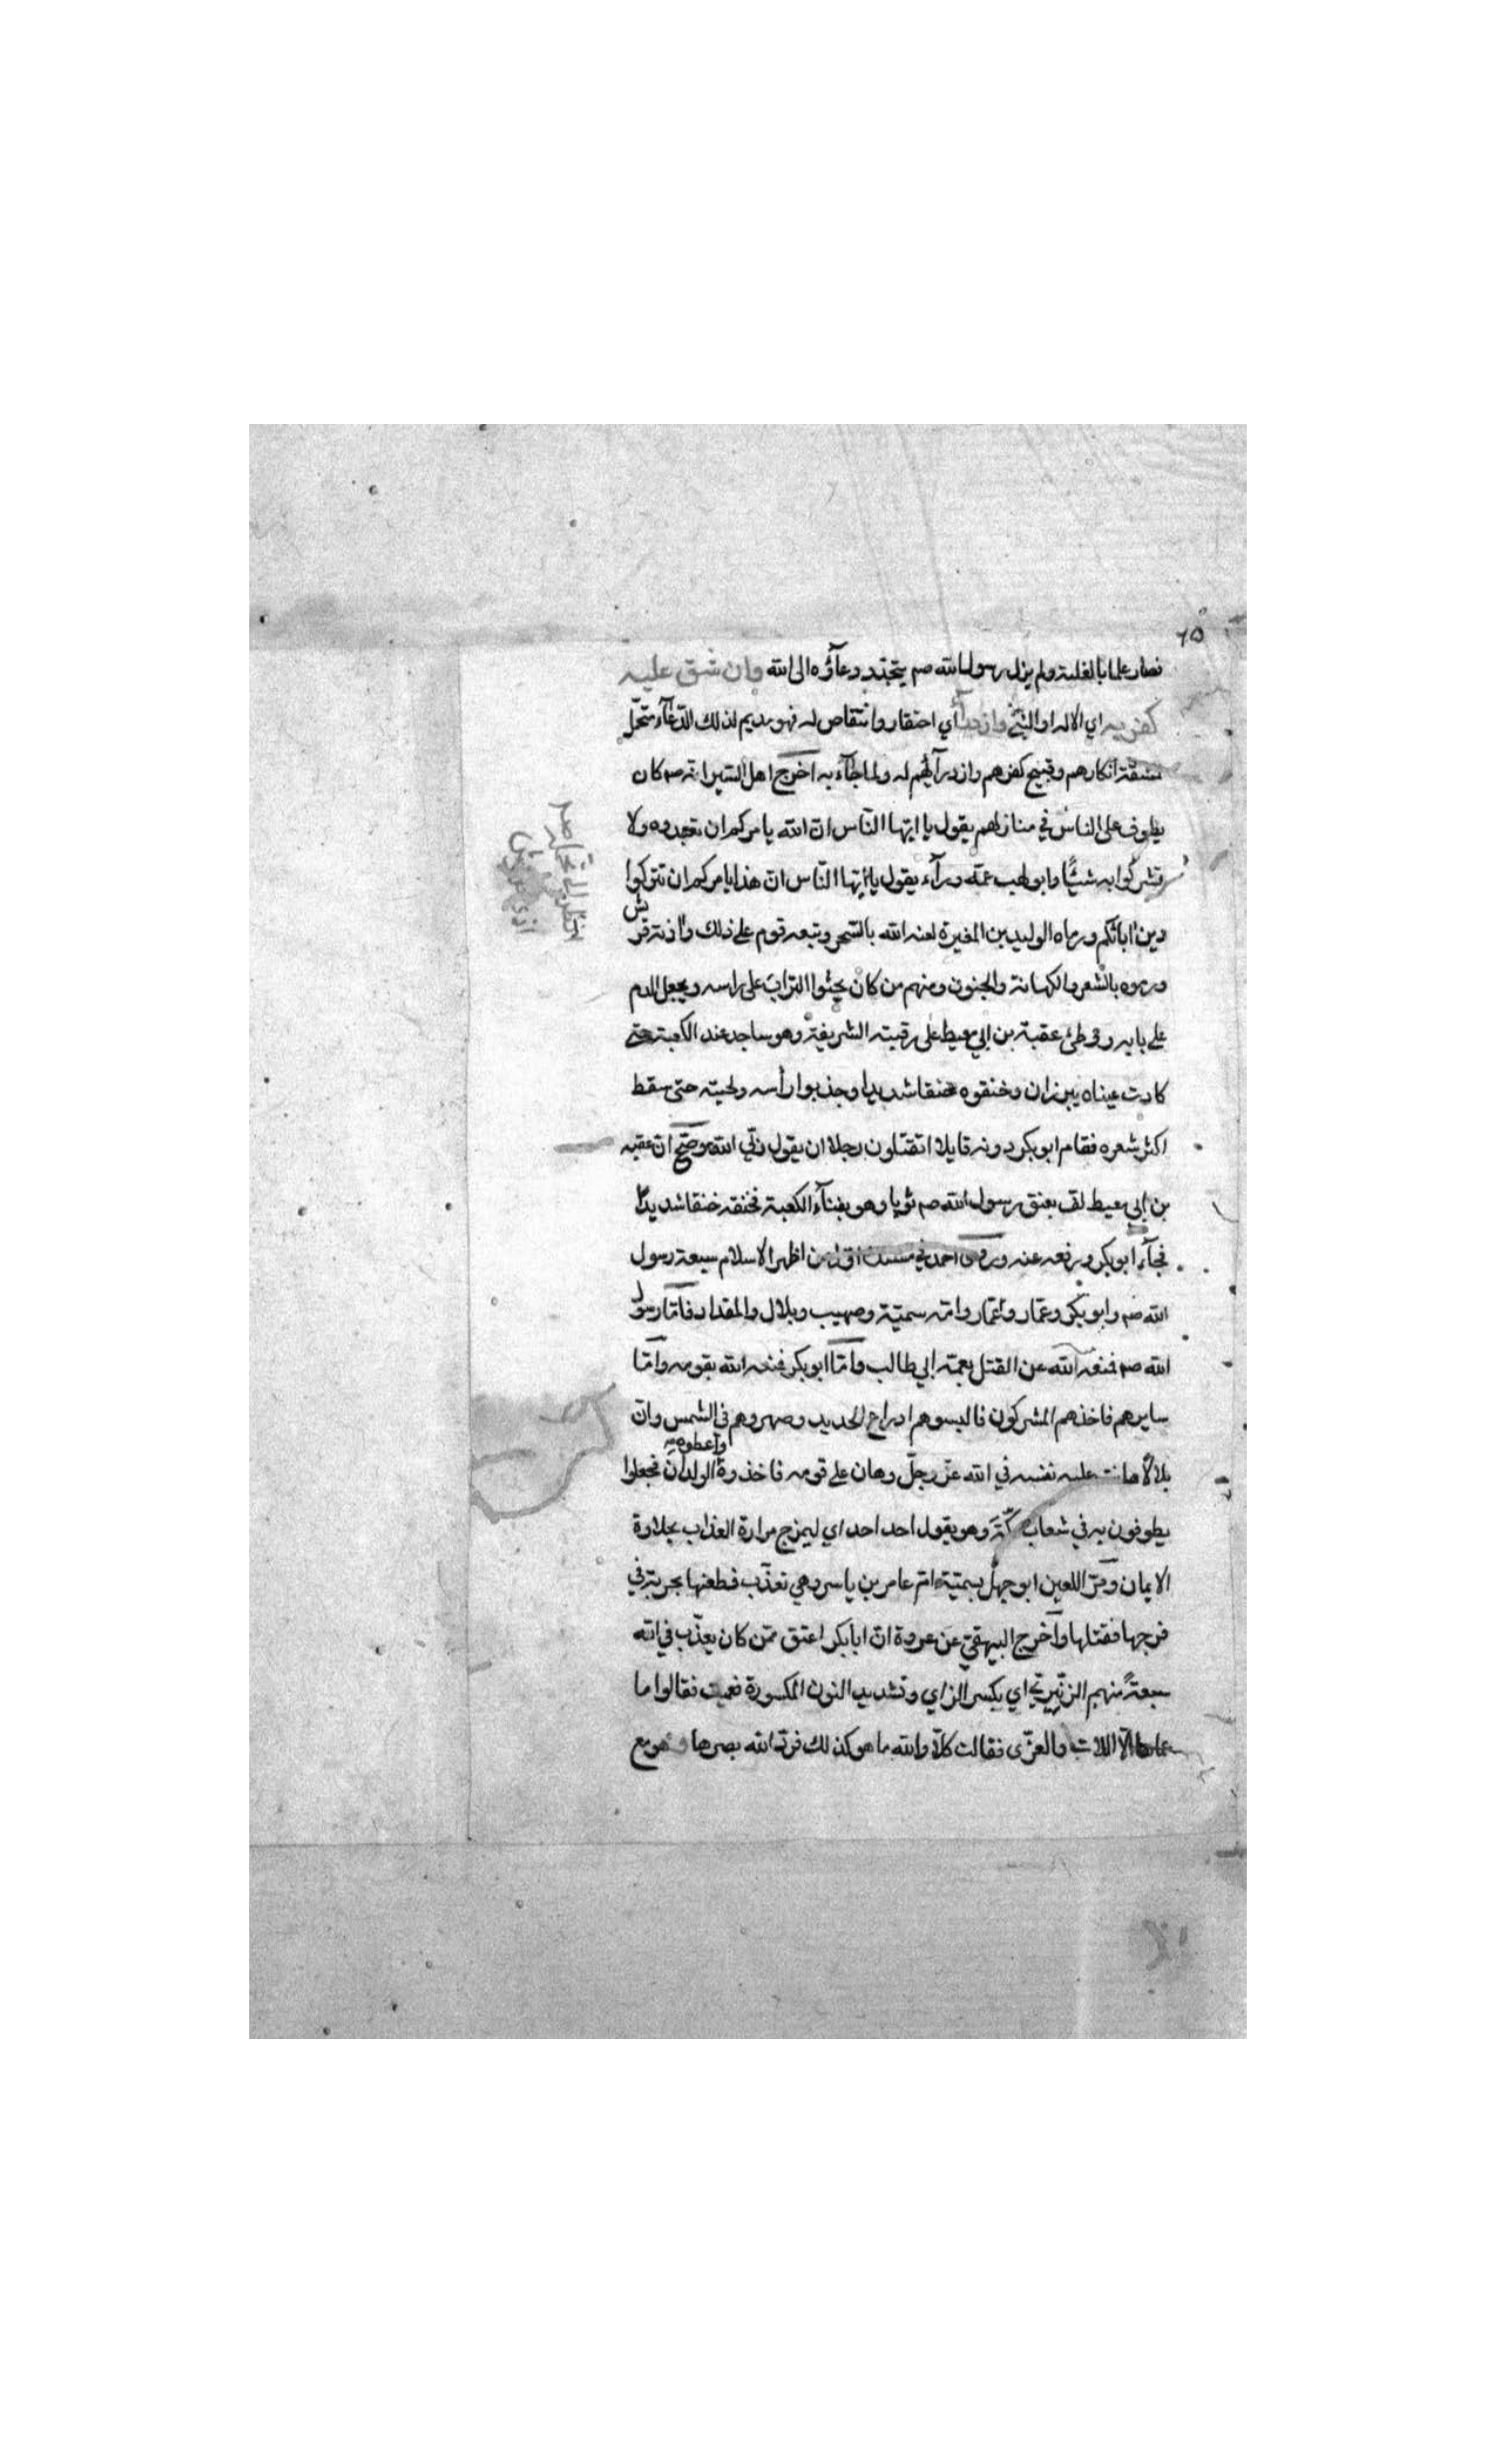 ٦٥
فصار علما بالغلبة ولم يزل رسول الله صم يتجدد دعآؤه الى الله وان شق عليه
كفر به اي الاله او النبيّ وازدرآء اي احتقار وانتقاص له فهو يديم لذلك الدّعآء متحمّل
مشقّة انكارهم وقبيح كفرهم وازدرآئهم له ولما جآء به اخرج اهل السّير انّه صم كان
يطوف على الناس في منازلهم يقول يا ايّها النّاس انّ الله يامركم ان تعبدوه ولا
تشركوا به شيئًا وابو لهب عمّه ورآءه يقول يا ايّها النّاس انّ هذا يامركم ان تتركوا
دين اٰبائكم ورماه الوليد بن المغيرة لعنه الله بالسّحر وتبعه قوم على ذلك واٰذته قريش
ورموه بالشّعر والكهانة والجنون ومنهم من كان يحثوا التراب على راسه ويجعل الدم
على بابه ووطئ عقبة بن ابي معيط على رقبته الشريفة وهو ساجد عند الكعبة حتى
كادت عيناه يبرزان وخنقوه خنقا شديدا وجذبوا رأسه ولحيته حتى سقط
اكثر شعره فقام ابو بكر دونه قايلا اتقتلون رجلا ان يقول ربّي الله وصحّ انّ عقبه
بن ابي معيط لف بعنق رسول الله صم ثوبا وهو بفنآء الكعبة فخنقه خنقا شديدًا
فجآء ابو بكر ورفعه عنه وروى احمد في مسنده اوّل من اظهر الاسلام سبعة رسول
الله صم وابو بكر وعمّار وامّه سميّة وصهيب وبلال والمقداد فامّا رسول
الله صم فمنعه الله عن القتل بعمّه ابي طالب وامّا ابو بكر فمنعه الله بقومه وامّا
سايرهم فاخذهم المشركون فالبسوهم ادراع الحديد وصهروهم في الشمس وانّ
بلالًا هانت عليه نفسه في الله عزّ وجلّ وهان على قومه فاخذوه واعطوه الولدان فجعلوا
يطوفون به في شعاب مكّة وهو يقول احد احد اي ليمزج مرارة العذاب بحلاوة
الايمان ومرّ اللعين ابو جهل بسميّة امّ عامر بن ياسر وهي تعذّب فطعنها بحربة في
فرجها فقتلها واخرج البيهقيّ عن عروة انّ ابا بكر اعتق ممّن كان يعذّب في الله
سبعةً منهم الزنّيرة اي بكسر الزاي وتشديد النون المكسورة فعميت فقالوا ما
الّا اللات والعزّى فقالت كلّا والله ما هو كذلك فردّ الله بصرها وهو مع